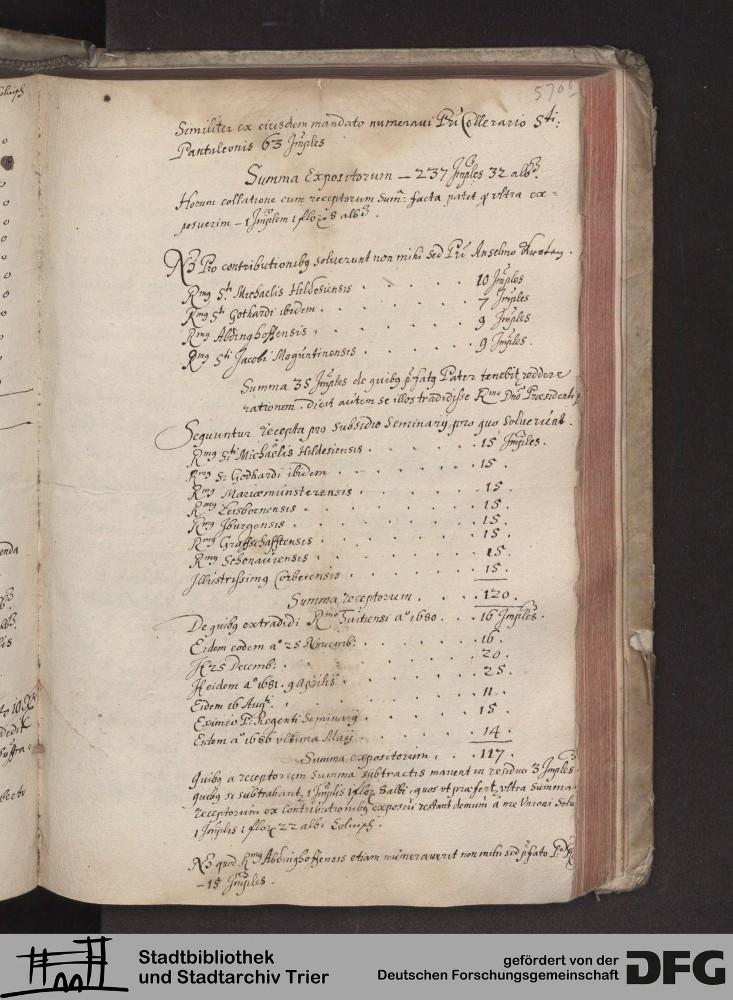 570
Similiter ex eiusdem mandato numeravi Pri Cellerario Sti:
Pantaleonis 63 Jmples
Summa Expositorum – 237 Jmples 32 alb.
Horum collatione cum receptorum Sum: facta patet q vltra ex=
posuerim – 1 Jmplem 1 flor 8 alb.
NB Pro contributionibq solverunt non mihi sed Pri Anselmo
Rmq Sti Michaelis Hildesiensis . . . . 10 Jmples
Rmq Sti Gothardi ibidem . . . . 7 Jmples
Rmq Abdinghoffensis . . . . 9 Jmples
Rmq Sti Jacobi Moguntinensis . . . . 9 Jmples.
Summa 35 Jmples de quibq pfatq Pater tenebit reddere
rationem. Dicit autem se illos tradidisse Rmo Dno Præsidenti
Sequuntur recepta pro subsidio Seminarij, pro quo solverunt.
Rmq Sti Michaelis Hildesiensis . . . . 15 Jmples.
Rmq S: Godhardi ibidem . . . . 15.
Rmq Mariæmunsterensis . . . . 15.
Rmq Leisbornensis . . . . 15.
Rmq Jburgensis . . . . 15.
Rmq Graffschafftensis . . . . 15.
Rmq Schonaviensis . . . . 15.
Jllustrissimq Corbeiensis . . . . 15.
Summa receptorum . . . . 120.
De quibq extradidi Rmo Tuitiensi ao 1680 . . . 16 Jmples.
Eidem eodem ao 25 Novemb: . . . . 16.
Jt 25 Decemb: . . . . 20.
Jt eidem ao 1681. 9 Aprilis . . . . 25.
Eidem 16 Augti . . . . 11.
Eximio P: Regenti Seminarij . . . . 15.
Eidem ao 1686 vltima Maij . . . . 14.
Summa expositorum . . . . 117.
Quibq a receptorum summa subtractis manent in residuo 3 Jmples
quibq si subtrahant, 1 Jmplis 1 flor 8 albi, quos vt præfert, vltra summa
receptorum ex contributionibq exposui restant demum a me Vnioni Solv
1 Jmplis 1 flor 22 albi Colniess.
NB quod Rmq Abdinghoffensis etiam numeraverit non mihi sed pfato
– 15 Jmples.
Stadtbibliothek
und Stadtarchiv Trier
gefördert von der
Deutschen Forschungsgemeinschaft
DFG